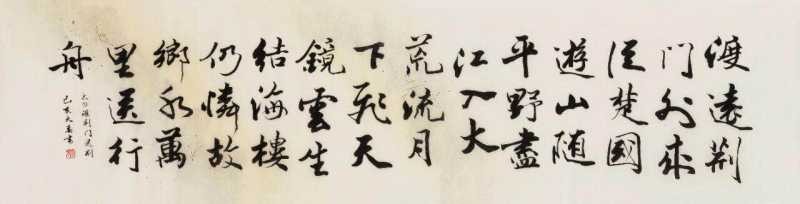 渡遠荆
門外來
從楚國
遊山隨
平野盡
江入大
荒流月
下飛天
鏡雲生
結海樓
仍憐故
鄉水萬
里送行
舟
太白渡荆门送别
己亥